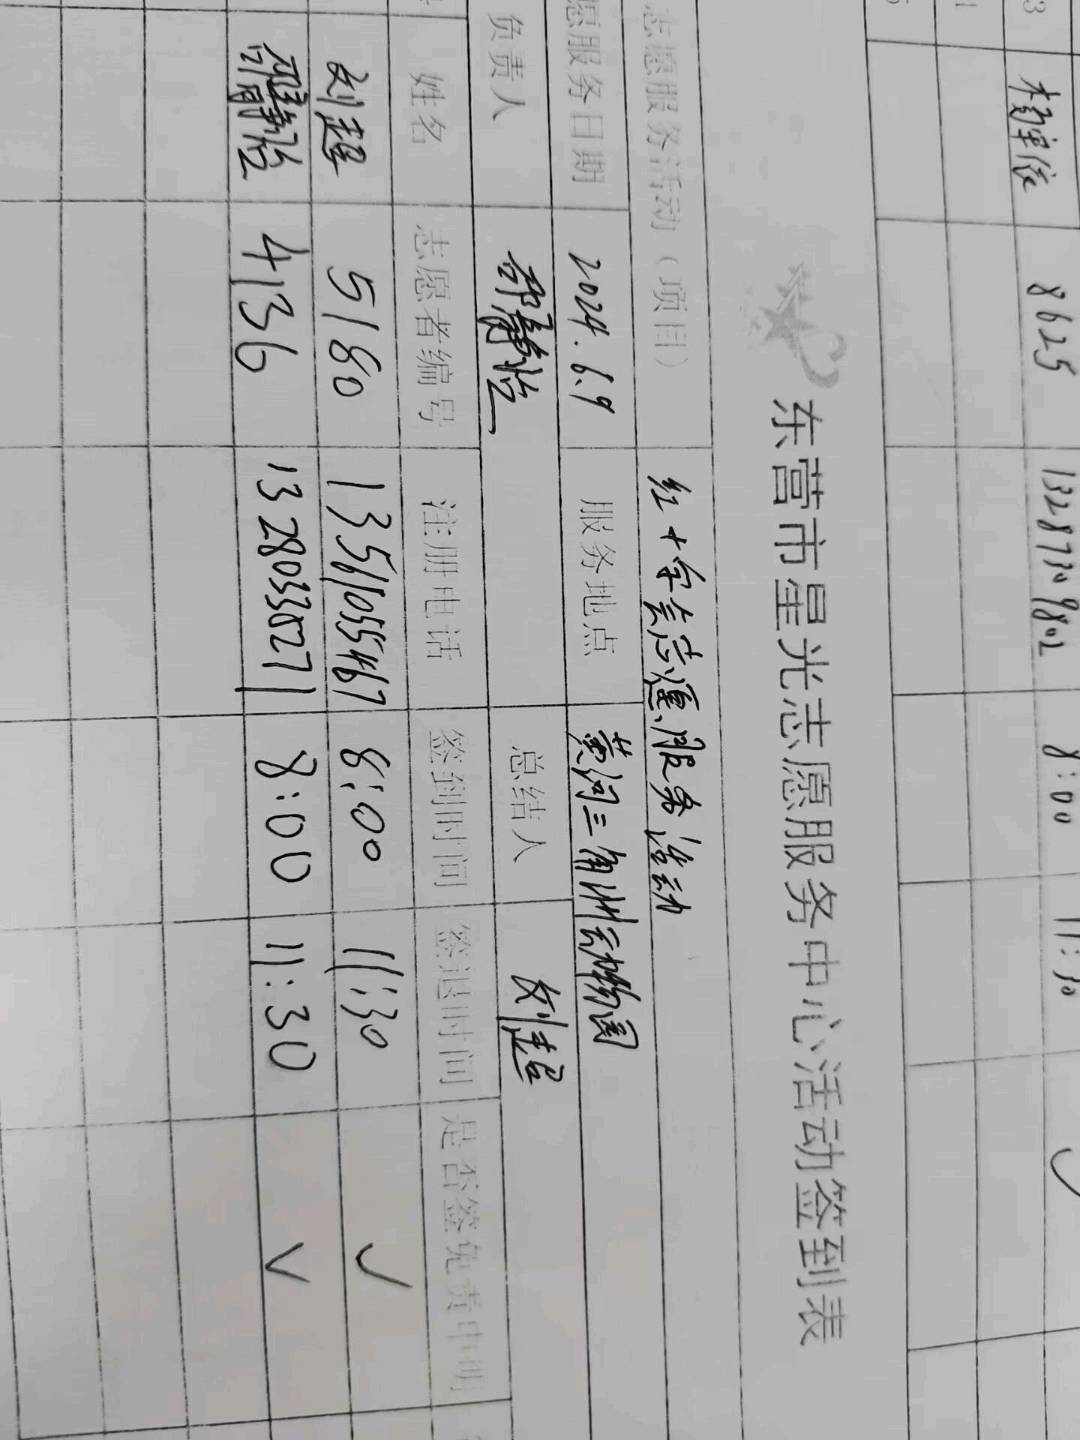 3 8625 13287309802 8:00 11:30 ✓
东营市星光志愿服务中心活动签到表
志愿服务活动(项目) 红十字会志愿服务活动
愿服务日期 2024.6.9 服务地点 黄河三角洲动物园
负责人 邵静怡 总结人 刘超
姓名 志愿者编号 注册电话 签到时间 签退时间 是否签免责申明
刘超 5180 13561055467 8:00 11:30 ✓
4136 8:00 11:30 ✓